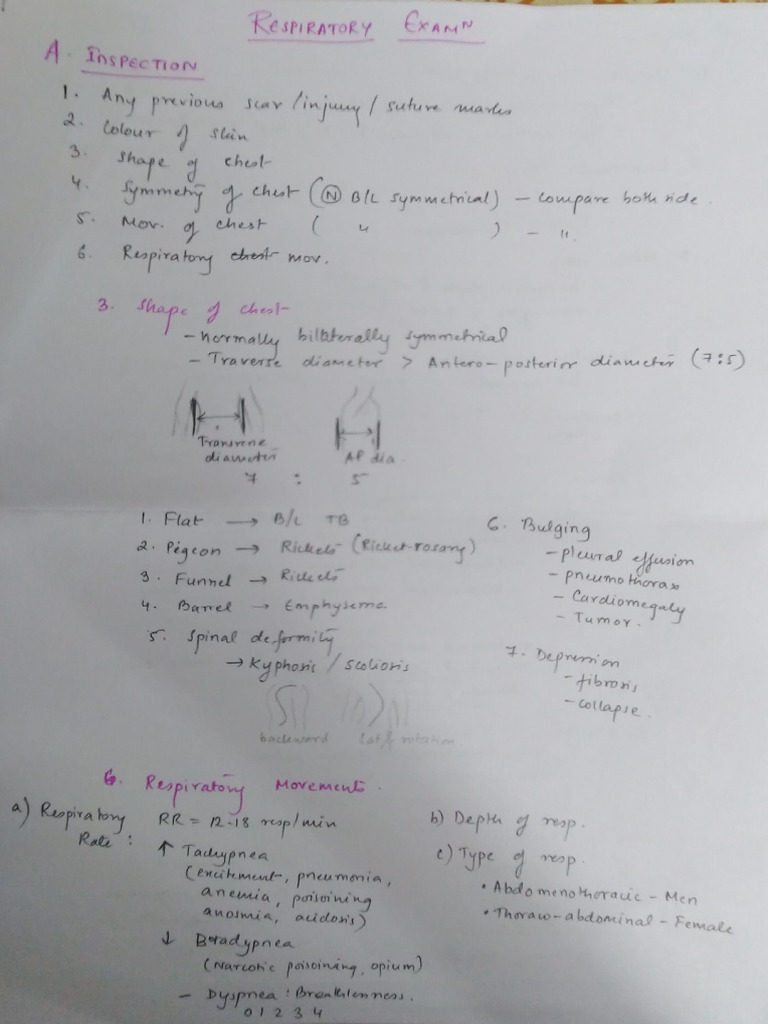 RESPIRATORY EXAMN
A. INSPECTION
1. Any previous scar /injury/ suture marks
2. Colour of skin
3. Shape of chest
4. Symmetry of chest (Ⓝ B/L symmetrical) - compare both side.
5. Mov. of chest ( " ) - ".
6. Respiratory chest mov.
3. Shape of chest
- normally bilaterally symmetrical
- Traverse diameter > Antero-posterior diameter (7:5)
Transverse diameter
AP dia.
7 : 5
1. Flat → B/L TB
2. Pigeon → Rickets (Ricket-rosary)
3. Funnel → Rickets
4. Barrel → Emphysema
5. Spinal deformity
→ Kyphosis / Scoliosis
backward lat & rotation.
6. Bulging
- pleural effusion
- pneumothorax
- Cardiomegaly
- Tumor.
7. Depression
- fibrosis
- collapse.
6. Respiratory Movements.
a) Respiratory Rate : RR = 12-18 resp/min
↑ Tachypnea
(excitement, pneumonia,
anemia, poisoining
anosmia, acidosis)
↓ Bradypnea
(Narcotic poisoining, opium)
- Dyspnea : Breathlenness.
0 1 2 3 4
b) Depth of resp.
c) Type of resp.
• Abdomenothoracic - Men
• Thoraco-abdominal - Female